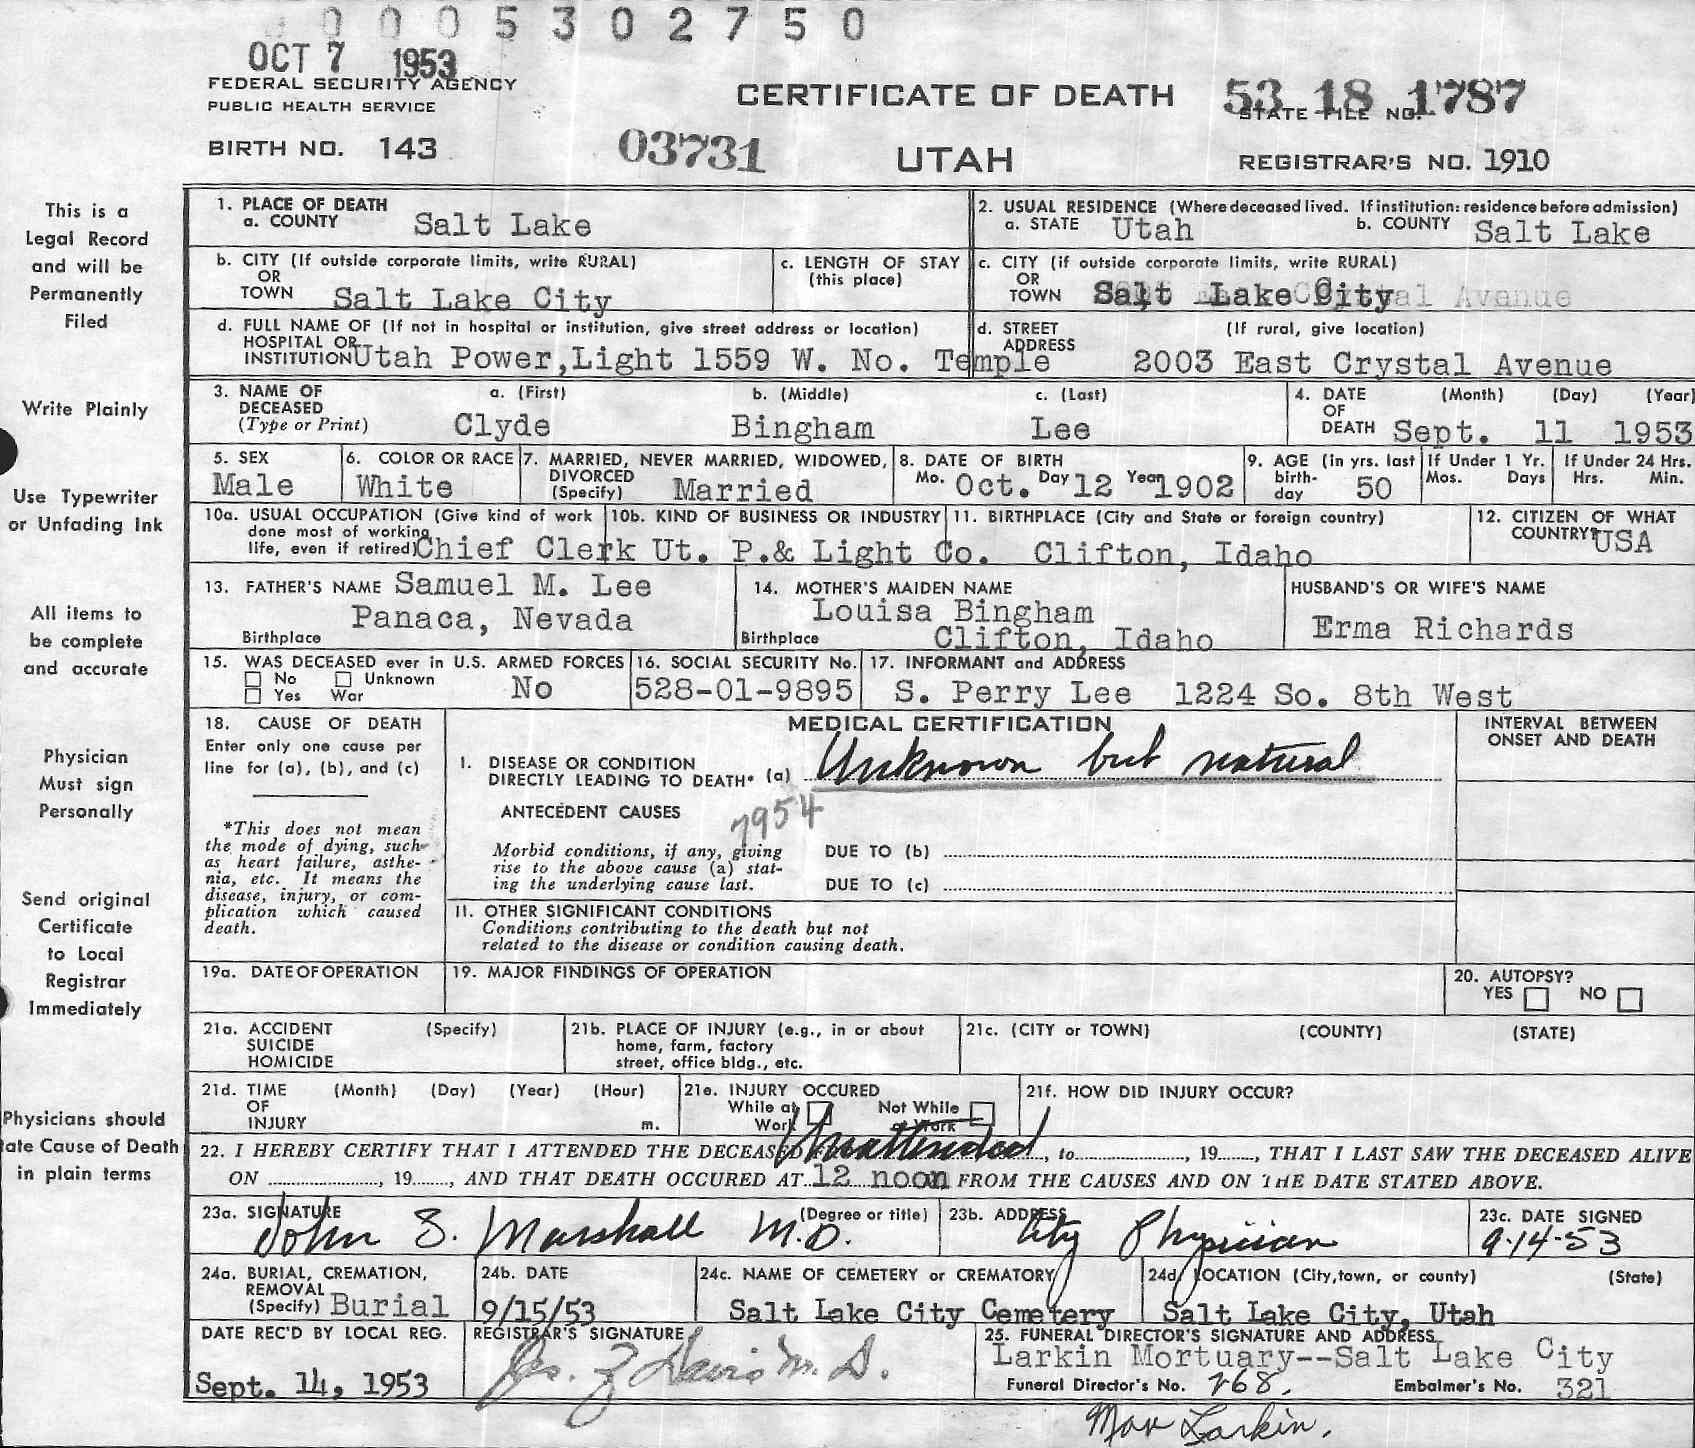 0 0 0 5 3 0 2 7 5 0
OCT 7 1953
FEDERAL SECURITY AGENCY
PUBLIC HEALTH SERVICE
BIRTH NO. 143
03731
CERTIFICATE OF DEATH
UTAH
53 18 1787
STATE FILE NO.
REGISTRAR'S NO. 1910
This is a
Legal Record
and will be
Permanently
Filed
Write Plainly
Use Typewriter
or Unfading Ink
All items to
be complete
and accurate
Physician
Must sign
Personally
Send original
Certificate
to Local
Registrar
Immediately
Physicians should
ate Cause of Death
in plain terms
1. PLACE OF DEATH
a. COUNTY Salt Lake
2. USUAL RESIDENCE (Where deceased lived. If institution: residence before admission)
a. STATE Utah b. COUNTY Salt Lake
b. CITY (If outside corporate limits, write RURAL)
OR
TOWN Salt Lake City
c. LENGTH OF STAY
(this place)
c. CITY (if outside corporate limits, write RURAL)
OR
TOWN Salt Lake City
d. FULL NAME OF (If not in hospital or institution, give street address or location)
HOSPITAL OR
INSTITUTION Utah Power,Light 1559 W. No. Temple
d. STREET (If rural, give location)
ADDRESS 2003 East Crystal Avenue
3. NAME OF a. (First) b. (Middle) c. (Last)
DECEASED
(Type or Print) Clyde Bingham Lee
4. DATE (Month) (Day) (Year)
OF
DEATH Sept. 11 1953
5. SEX
Male
6. COLOR OR RACE
White
7. MARRIED, NEVER MARRIED, WIDOWED,
DIVORCED
(Specify) Married
8. DATE OF BIRTH
Mo. Oct. Day 12 Year 1902
9. AGE (in yrs. last
birth-
day 50
If Under 1 Yr.
Mos. Days
If Under 24 Hrs.
Hrs. Min.
10a. USUAL OCCUPATION (Give kind of work
done most of working
life, even if retired) Chief Clerk
10b. KIND OF BUSINESS OR INDUSTRY
Ut. P.& Light Co.
11. BIRTHPLACE (City and State or foreign country)
Clifton, Idaho
12. CITIZEN OF WHAT
COUNTRY? USA
13. FATHER'S NAME Samuel M. Lee
Panaca, Nevada
Birthplace
14. MOTHER'S MAIDEN NAME
Louisa Bingham
Birthplace Clifton, Idaho
HUSBAND'S OR WIFE'S NAME
Erma Richards
15. WAS DECEASED ever in U.S. ARMED FORCES
No Unknown
Yes War
No
16. SOCIAL SECURITY No.
528-01-9895
17. INFORMANT and ADDRESS
S. Perry Lee 1224 So. 8th West
18. CAUSE OF DEATH
Enter only one cause per
line for (a), (b), and (c)
*This does not mean
the mode of dying, such
as heart failure, asthe-
nia, etc. It means the
disease, injury, or com-
plication which caused
death.
MEDICAL CERTIFICATION
I. DISEASE OR CONDITION
DIRECTLY LEADING TO DEATH* (a) Unknown but natural
ANTECEDENT CAUSES
7954
Morbid conditions, if any, giving
rise to the above cause (a) stat-
ing the underlying cause last.
DUE TO (b)
DUE TO (c)
II. OTHER SIGNIFICANT CONDITIONS
Conditions contributing to the death but not
related to the disease or condition causing death.
INTERVAL BETWEEN
ONSET AND DEATH
19a. DATE OF OPERATION
19. MAJOR FINDINGS OF OPERATION
20. AUTOPSY?
YES NO
21a. ACCIDENT (Specify)
SUICIDE
HOMICIDE
21b. PLACE OF INJURY (e.g., in or about
home, farm, factory
street, office bldg., etc.
21c. (CITY or TOWN) (COUNTY) (STATE)
21d. TIME (Month) (Day) (Year) (Hour)
OF
INJURY m.
21e. INJURY OCCURED
While at Not While
Work at Work
21f. HOW DID INJURY OCCUR?
22. I HEREBY CERTIFY THAT I ATTENDED THE DECEASED Unattended, to, 19, THAT I LAST SAW THE DECEASED ALIVE
ON, 19, AND THAT DEATH OCCURED AT 12 noon FROM THE CAUSES AND ON THE DATE STATED ABOVE.
23a. SIGNATURE (Degree or title)
John S. Marshall M.D.
23b. ADDRESS
City Physician
23c. DATE SIGNED
9-14-53
24a. BURIAL, CREMATION,
REMOVAL
(Specify) Burial
24b. DATE
9/15/53
24c. NAME OF CEMETERY or CREMATORY
Salt Lake City Cemetery
24d. LOCATION (City, town, or county) (State)
Salt Lake City, Utah
DATE REC'D BY LOCAL REG.
Sept. 14, 1953
REGISTRAR'S SIGNATURE
Jas. Z Davis M.D.
25. FUNERAL DIRECTOR'S SIGNATURE AND ADDRESS
Larkin Mortuary--Salt Lake City
Funeral Director's No. 268. Embalmer's No. 321
Larkin.